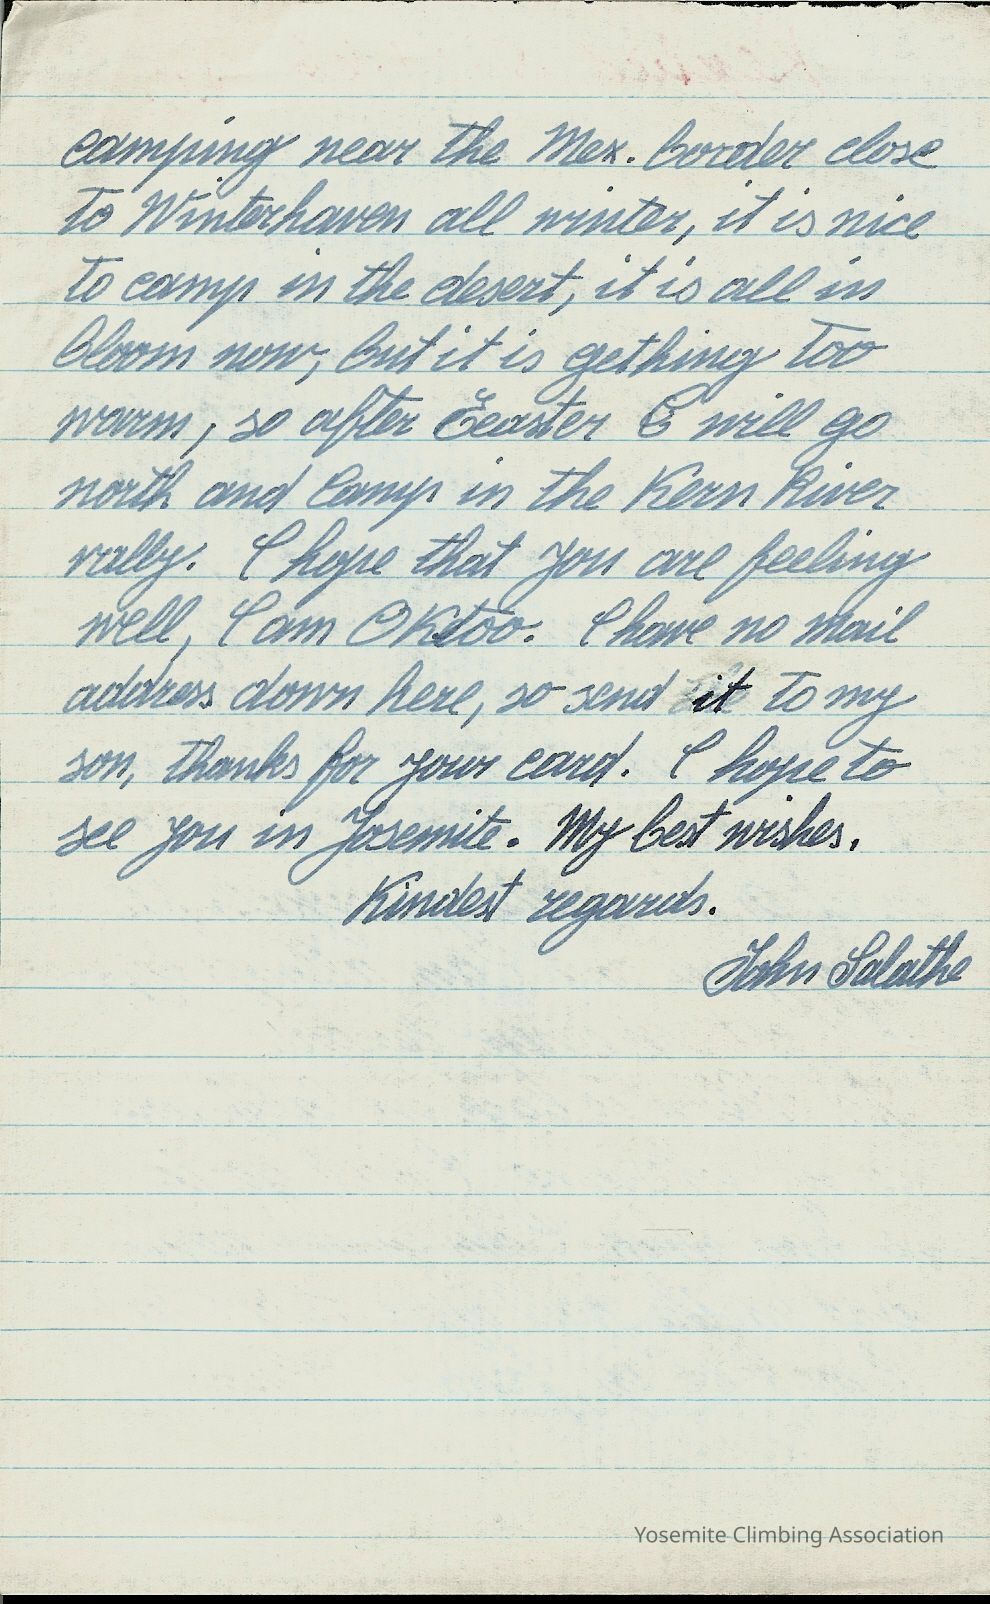 camping near the Mex. border close
to Winterhaven all winter, it is nice
to camp in the desert, it is all in
bloom now, but it is gething too
warm, so after Eeaster I will go
north and Camp in the Kern River
vally. I hope that you are feeling
well, I am OK too. I have no mail
address down here, so send it to my
son, thanks for your card. I hope to
see you in Yosemite. My best wishes.
Kindest regards.
John Salathe
Yosemite Climbing Association